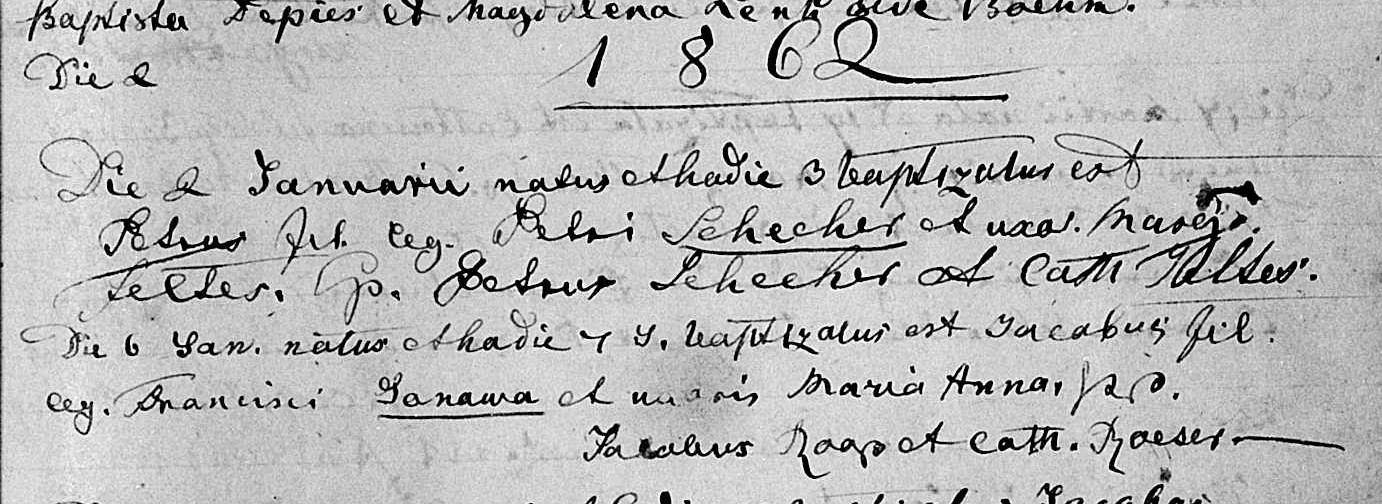 Baptista Depies et Magdalena Lenk sive Boehm.
1862
Die 2
Die 2 Januarii natus et hodie 3 baptizatus est
Petrus fil. leg. Petri Schecher et uxor. Marg.
Feltes. Sp. Petrus Schecher et Cath Feltes.
Die 6 Jan. natus et hodie 7 J. baptizatus est Jacobus fil.
leg. Francisci Janawa et uxoris Maria Anna, pp.
Jacobus Roap et Cath. Roeser